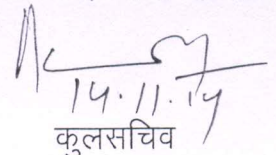 14.11.14
कुलसचिव